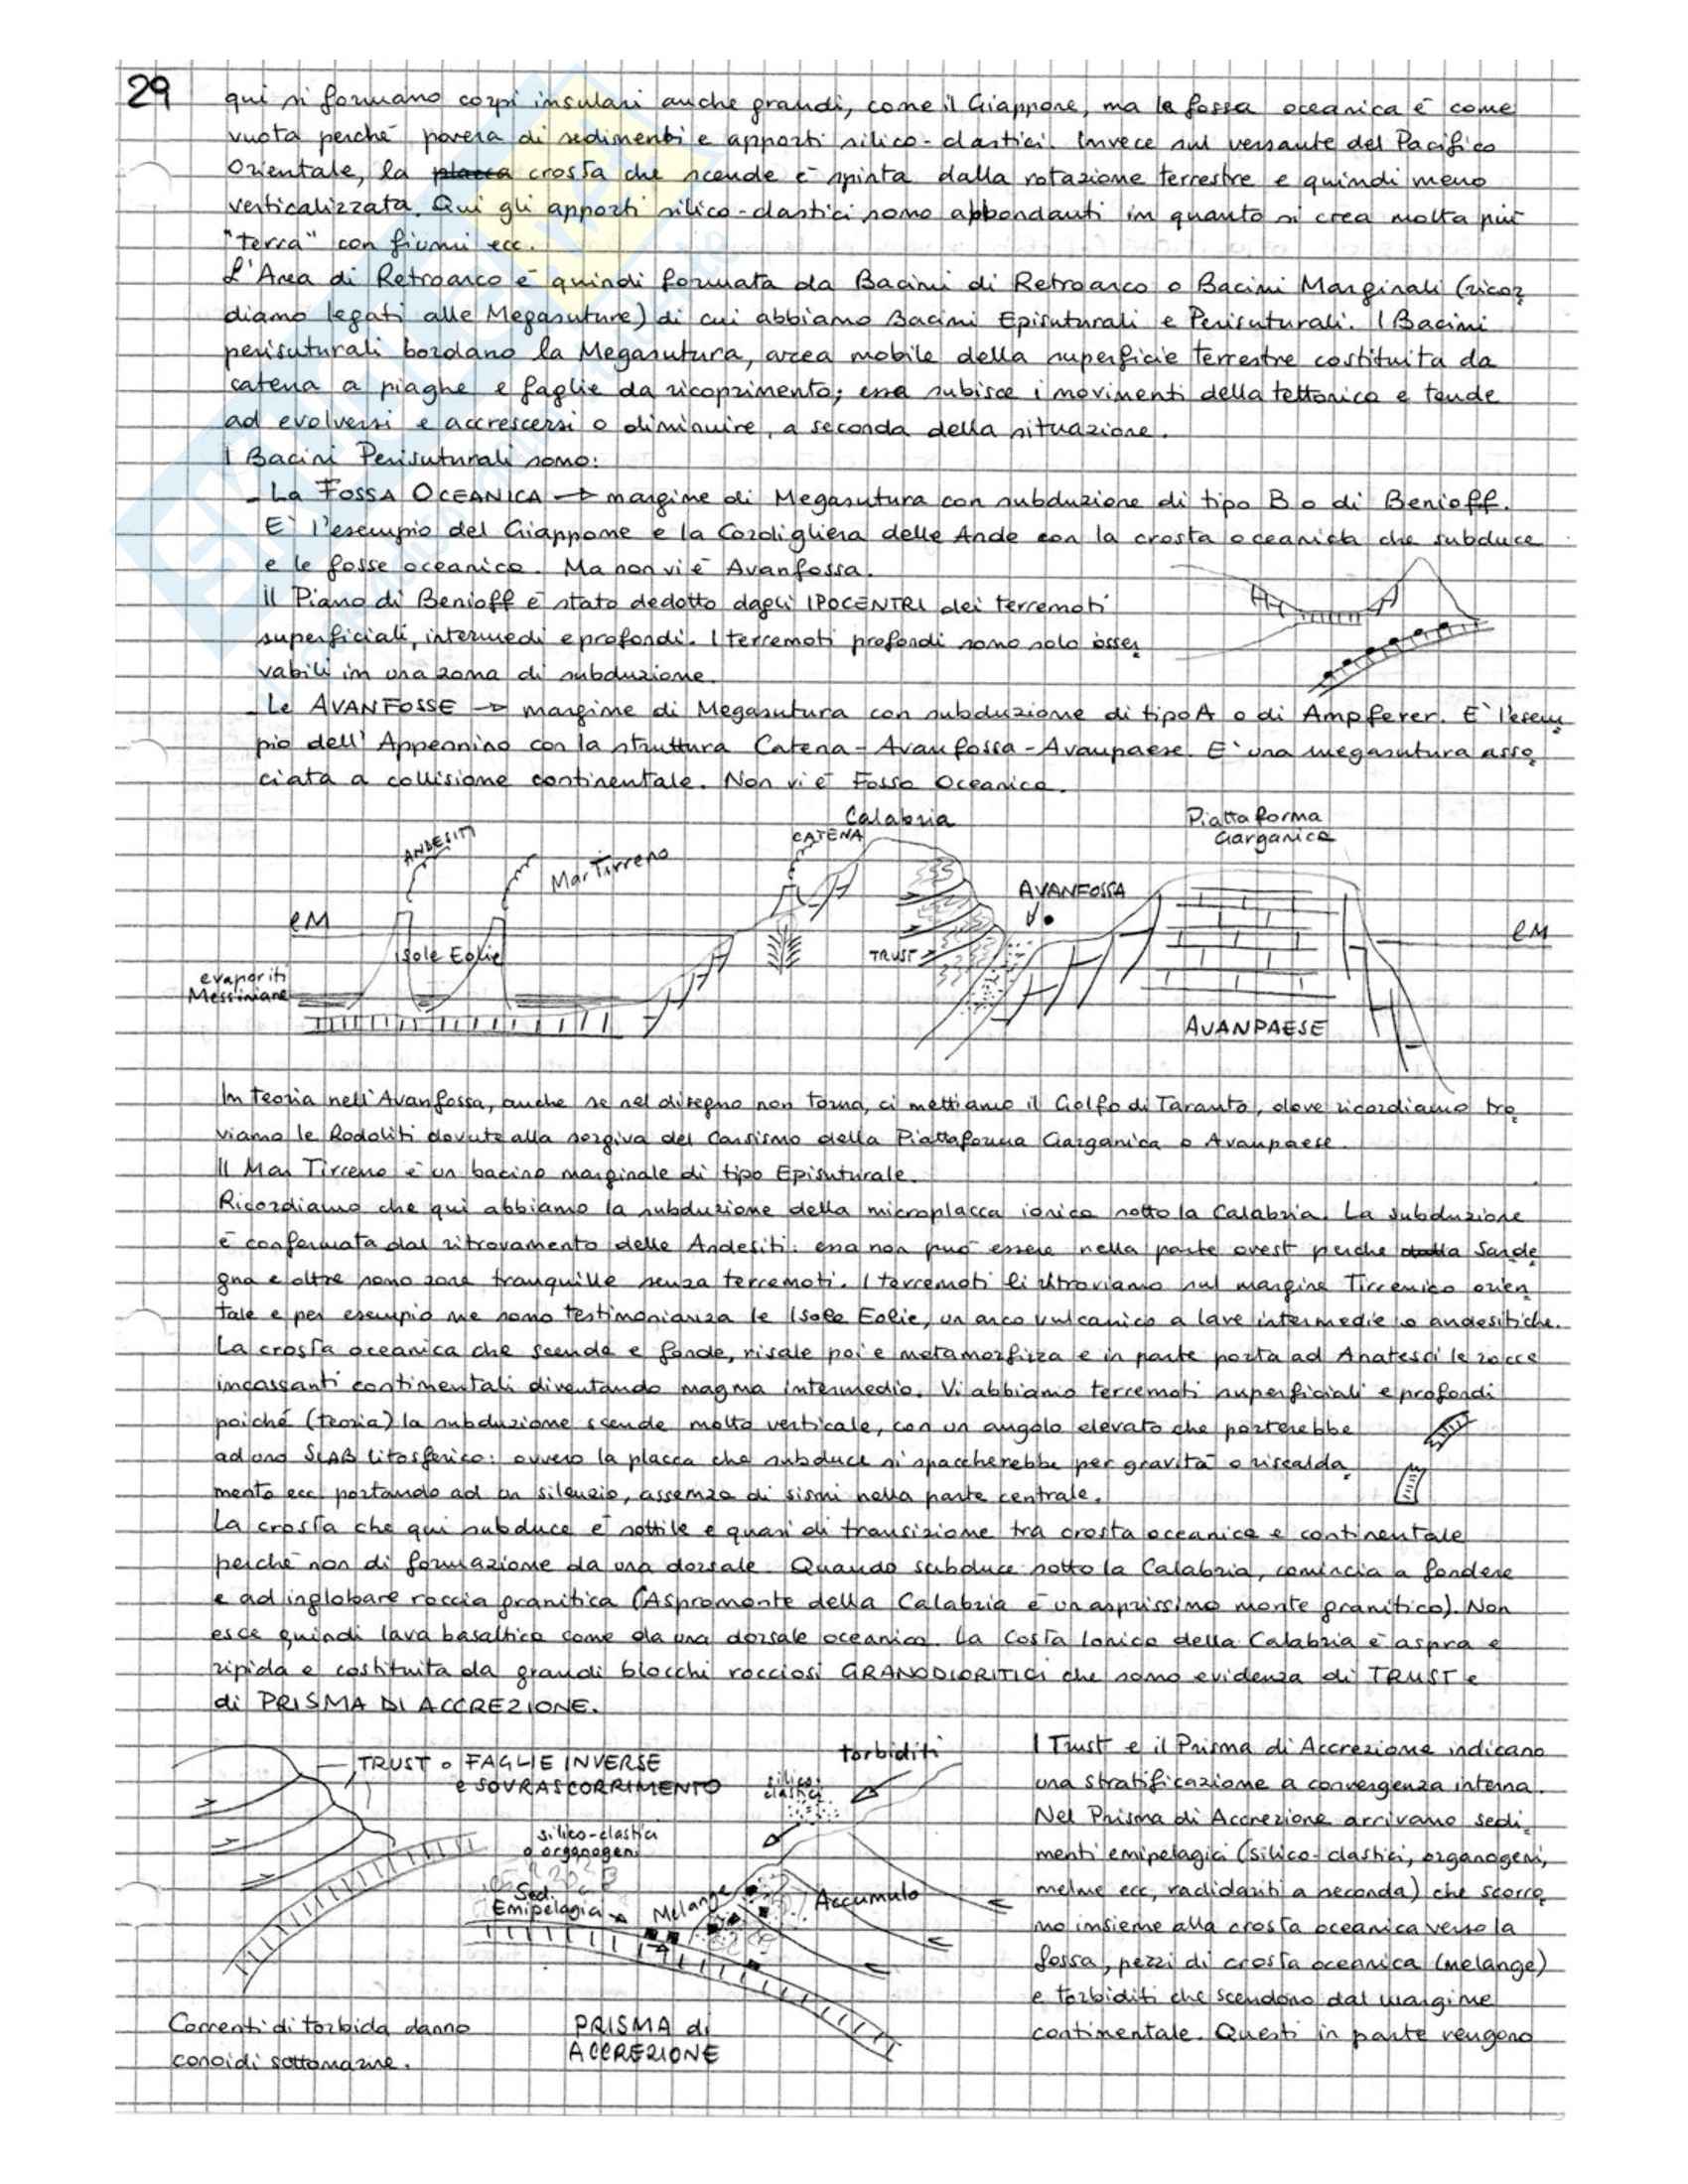 29
qui si formano corpi insulari anche grandi, come il Giappone, ma la fossa oceanica è come
vuota perché povera di sedimenti e apporti silico-clastici. Invece sul versante del Pacifico
Orientale, la placca crosta che scende è spinta dalla rotazione terrestre e quindi meno
verticalizzata. Qui gli apporti silico-clastici sono abbondanti in quanto si crea molta più
"terra" con fiumi ecc.
L'Area di Retroarco è quindi formata da Bacini di Retroarco o Bacini Marginali (ricor
diamo legati alle Megasuture) di cui abbiamo Bacini Episuturali e Perisuturali. I Bacini
perisuturali bordano la Megasutura, area mobile della superficie terrestre costituita da
catena a pieghe e faglie da ricoprimento; essa subisce i movimenti della tettonica e tende
ad evolversi e accrescersi o diminuire, a seconda della situazione.
I Bacini Perisuturali sono:
- La FOSSA OCEANICA → margine di Megasutura con subduzione di tipo B o di Benioff.
E' l'esempio del Giappone e la Cordigliera delle Ande con la crosta oceanica che subduce
e le fosse oceanica. Ma non vi è Avanfossa.
Il Piano di Benioff è stato dedotto dagli IPOCENTRI dei terremoti
superficiali, intermedi e profondi. I terremoti profondi sono solo osser
vabili in una zona di subduzione.
- Le AVANFOSSE → margine di Megasutura con subduzione di tipo A o di Ampferer. E' l'esem
pio dell'Appennino con la struttura Catena-Avanfossa-Avanpaese. E' una megasutura asso
ciata a collisione continentale. Non vi è Fossa Oceanica.
ANDESITI
Mar Tirreno
CATENA
Calabria
Piattaforma
Garganica
AVANFOSSA
lM
Isole Eolie
TRUST
lM
evaporiti
Messiniane
AVANPAESE
In teoria nell'Avanfossa, anche se nel disegno non torna, ci mettiamo il Golfo di Taranto, dove ricordiamo tro
viamo le Rodoliti dovute alla sorgiva del Carsismo della Piattaforma Garganica o Avanpaese.
Il Mar Tirreno è un bacino marginale di tipo Episuturale.
Ricordiamo che qui abbiamo la subduzione della microplacca ionica sotto la Calabria. La subduzione
è confermata dal ritrovamento delle Andesiti: essa non può essere nella parte ovest perché dalla Sarde
gna e oltre sono zone tranquille senza terremoti. I terremoti li ritroviamo sul margine Tirrenico orien
tale e per esempio ne sono testimonianza le Isole Eolie, un arco vulcanico a lave intermedie o andesitiche.
La crosta oceanica che scende e fonde, risale poi e metamorfizza e in parte porta ad Anatessi le rocce
incassanti continentali diventando magma intermedio. Vi abbiamo terremoti superficiali e profondi
poiché (teoria) la subduzione scende molto verticale, con un angolo elevato che porterebbe
ad uno SLAB litosferico: ovvero la placca che subduce si spaccherebbe per gravità o riscalda
mento ecc. portando ad un silenzio, assenza di sismi nella parte centrale.
La crosta che qui subduce è sottile e quasi di transizione tra crosta oceanica e continentale
perché non di formazione da una dorsale. Quando subduce sotto la Calabria, comincia a fondere
e ad inglobare roccia granitica (Aspromonte della Calabria è un asprissimo monte granitico). Non
esce quindi lava basaltica come da una dorsale oceanica. La Costa Ionica della Calabria è aspra e
ripida e costituita da grandi blocchi rocciosi GRANODIORITICI che sono evidenza di TRUST e
di PRISMA DI ACCREZIONE.
TRUST o FAGLIE INVERSE
e SOVRASCORRIMENTO
torbiditi
silico-
clastici
silico-clastici
o organogeni
Sed.
Emipelagici
Melange
Accumulo
PRISMA di
ACCREZIONE
Correnti di torbida danno
conoidi sottomarine.
I Trust e il Prisma di Accrezione indicano
una stratificazione a convergenza interna.
Nel Prisma di Accrezione arrivano sedi
menti emipelagici (silico-clastici, organogeni,
melme ecc, radiolariti a seconda) che scorro
no insieme alla crosta oceanica verso la
fossa, pezzi di crosta oceanica (melange)
e torbiditi che scendono dal margine
continentale. Questi in parte vengono